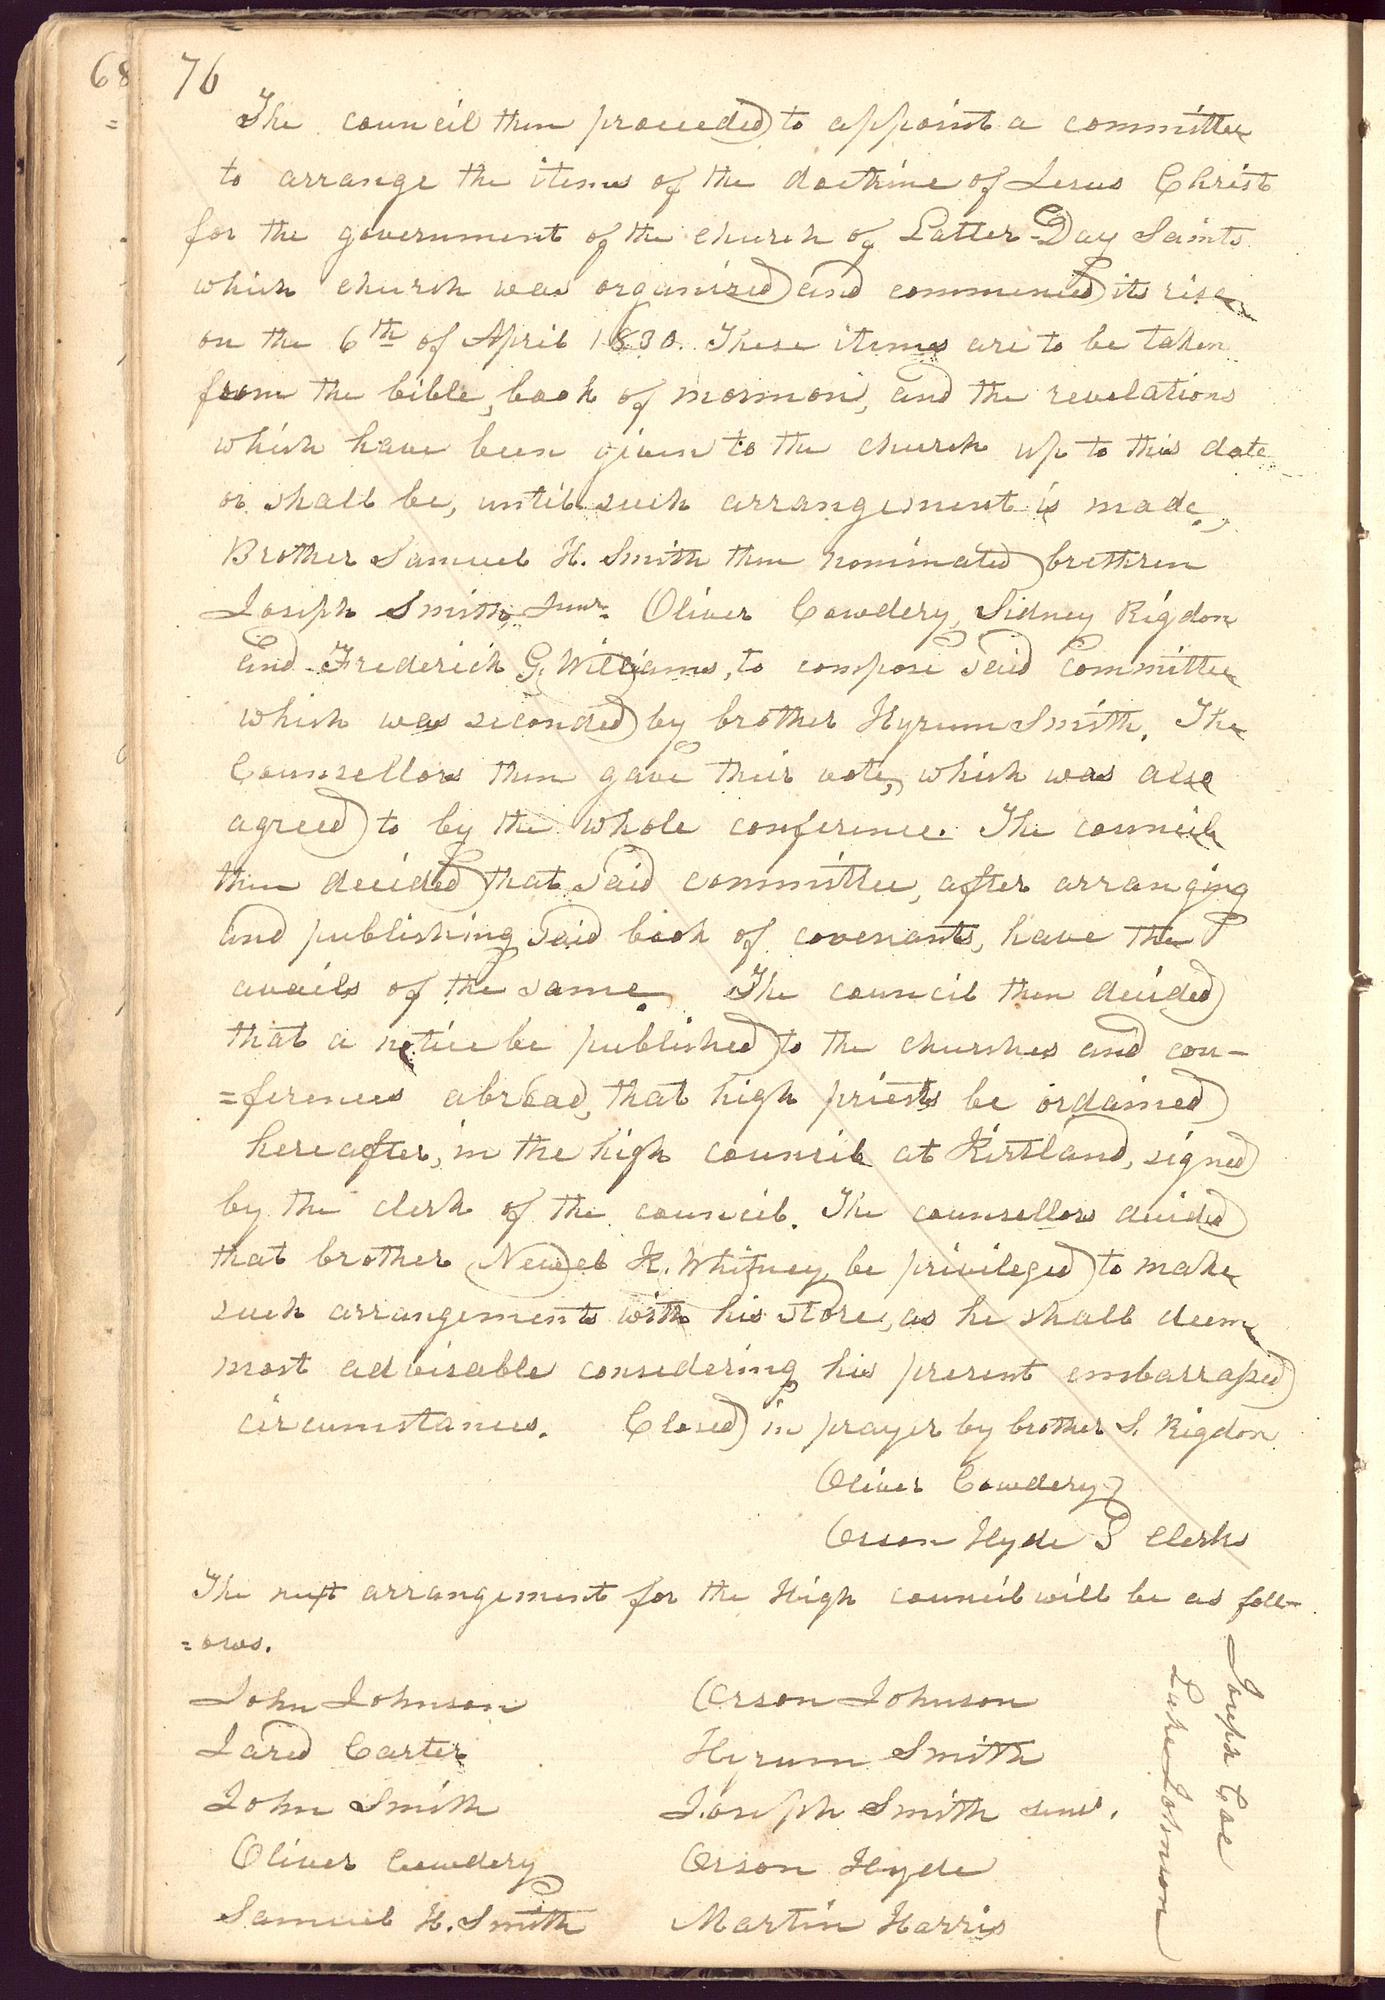 68
76
The council then proceeded to appoint a committee
to arrange the items of the doctrine of Jesus Christ
for the government of the church of Latter-Day Saints
which church was organized and commenced its rise
on the 6th of April 1830. These items are to be taken
from the bible, book of mormon, and the revelations
which have been given to the church up to this date
or shall be, until such arrangement is made.
Brother Samuel H. Smith then nominated brethren
Joseph Smith Junr. Oliver Cowdery, Sidney Rigdon
and Frederick G. Williams, to compose said committee
which was seconded by brother Hyrum Smith. The
Counsellors then gave their vote, which was also
agreed to by the whole conference. The council
then decided that said committee, after arranging
and publishing said book of covenants, have the
avails of the same. The council then decided
that a notice be published to the churches and con-
=ferences abroad, that high priests be ordained
hereafter, in the high council at Kirtland, signed
by the clerk of the council. The counsellors decided
that brother Newel K. Whitney be privileged to make
such arrangements with his store, as he shall deem
most advisable considering his present embarrassed
circumstances. Closed in prayer by brother S. Rigdon
Oliver Cowdery
Orson Hyde } Clerks
The next arrangement for the High council will be as foll-
=ows.
John Johnson Orson Johnson
Jared Carter Hyrum Smith
John Smith Joseph Smith senr.
Oliver Cowdery Orson Hyde
Samuel H. Smith Martin Harris
Joseph Coe
Luke Johnson